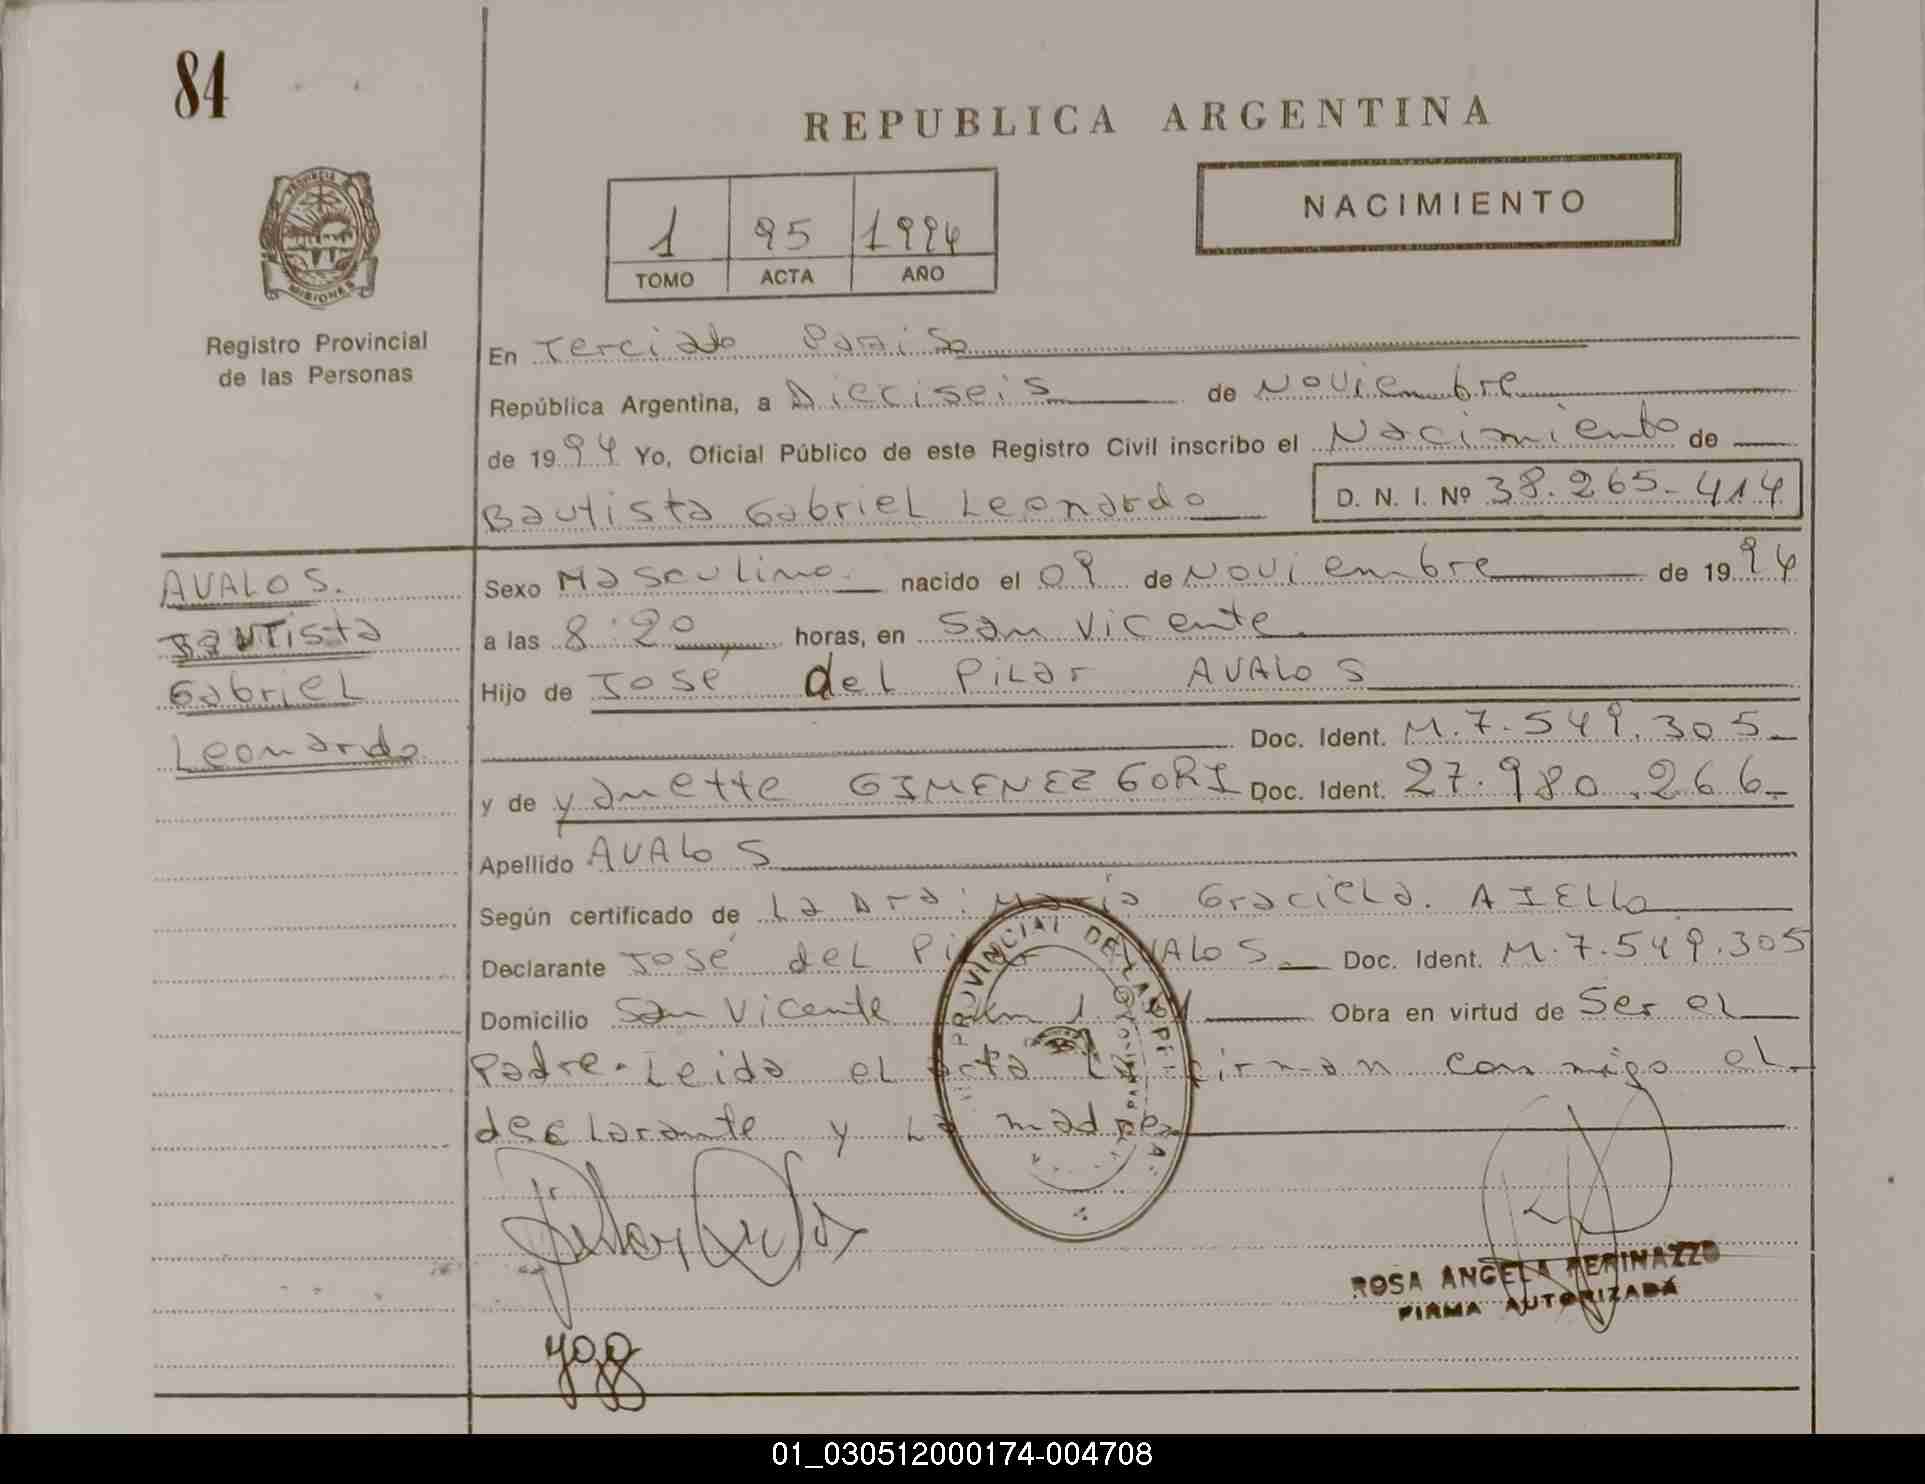 84
REPUBLICA ARGENTINA
NACIMIENTO
1 95 1994
TOMO ACTA AÑO
PROVINCIA
MISIONES
Registro Provincial
de las Personas
En Terciado Paraiso
República Argentina, a Dieciseis de Noviembre
de 1994 Yo, Oficial Público de este Registro Civil inscribo el Nacimiento de
Bautista Gabriel Leonardo D. N. I. Nº 38.265.414
AVALOS.
Bautista
Gabriel
Leonardo
Sexo Masculino. nacido el 09 de Noviembre de 1994
a las 8:20 horas, en San Vicente
Hijo de José del Pilar AVALOS
Doc. Ident. M.7.549.305
y de Yanette GIMENEZ GORI Doc. Ident. 27.980.266
Apellido AVALOS
Según certificado de La Dra: María Graciela. AIELLO
Declarante José del Pilar AVALOS Doc. Ident. M.7.549.305
Domicilio San Vicente Km 1 Obra en virtud de Ser el
Padre. Leida el acta la firman conmigo el
declarante y la madre
PROVINCIAL DE LAS
ROSA ANGELA PERINAZZO
FIRMA AUTORIZADA
ygg
01_030512000174-004708